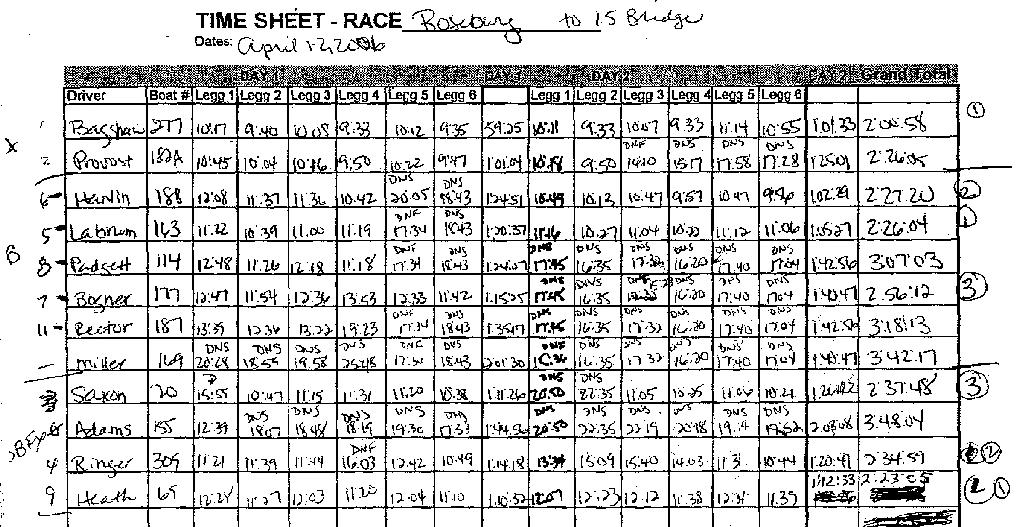 TIME SHEET - RACE Roseburg to I5 Bridge
Dates: April 1-2, 2006
DAY 1 DAY 2 Grand Total
Driver Boat # Legg 1 Legg 2 Legg 3 Legg 4 Legg 5 Legg 6 Legg 1 Legg 2 Legg 3 Legg 4 Legg 5 Legg 6
Bagshaw 277 10:17 9:40 10:08 9:33 10:12 9:35 59:25 10:11 9:33 10:07 9:33 11:14 10:55 1:01:33 2:00:58 1
DNF DNS DNS DNS
2 Provost 182A 10:45 10:04 10:16 9:50 10:22 9:47 1:01:04 9:50 15:17 17:58 17:28 1:25:01
DNS DNS
6 188 12:08 11:37 11:36 10:42 20:05 18:43 1:24:51 10:49 10:12 10:47 9:57 10:47 9:56 1:02:29 2:27:20 2
DNF DNS
5 163 11:22 10:39 11:00 11:19 17:34 18:43 10:27 11:04 11:12 11:06 2:26:04 1
DNF DNS DNS DNS DNS DNS DNS
B 8 Padgett 114 12:48 11:26 12:18 11:18 17:34 18:43 1:24:07 17:45 16:35 17:32 16:20 17:40 17:04 1:42:56 3:07:03
DNS DNS DNS DNS
7 Bosner 177 12:47 11:54 12:36 13:53 12:33 11:42 1:15:25 17:45 16:35 16:20 17:40 17:04 1:40:47 2:56:12 3
DNF DNS DNS DNS DNS DNS DNS DNS
11 Rector 187 13:39 12:36 13:22 19:23 17:34 18:43 1:35:17 17:45 16:35 17:32 16:20 17:40 17:04 1:42:56 3:18:13
DNS DNS DNS DNS DNS DNS DNF DNS DNS DNS DNS DNS
Miller 169 20:28 18:55 19:58 25:48 17:34 18:43 2:01:30 16:35 17:32 16:20 17:40 17:04 1:40:47 3:42:17
DNS DNS
Saxon 20 15:55 10:47 11:15 11:31 11:20 10:38 1:11:26 20:50 22:35 11:05 10:35 11:06 10:21 2:37:48 3
DNS DNS DNS DNS DNS DNS DNS DNS DNS DNS DNS
Adams 155 12:39 18:07 18:48 18:19 19:30 17:33 1:44:56 20:50 22:35 22:19 20:48 19:14 2:03:08 3:48:04
DNF
4 Ringer 309 11:21 11:39 11:44 16:03 12:42 10:49 1:14:18 15:09 15:40 14:03 10:44 1:20:41 2:34:59 2
9 Heath 65 12:28 11:27 12:03 11:20 12:04 11:10 1:10:32 12:07 12:23 12:12 11:38 11:35 1:12:33 2:23:05 1